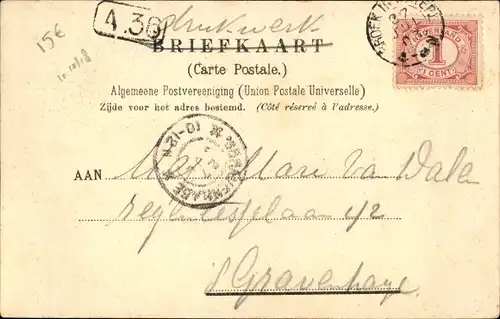 15€
4.36
drukwerk
BRIEFKAART
(Carte Postale.)
Algemeene Postvereeniging (Union Postale Universelle)
Zijde voor het adres bestemd. (Côté réservé à l'adresse.)
NEDERLAND
1
1 CENT
10-12V
'S GRAVENHAGE
AAN Marie van Dalen
's Gravenhage.